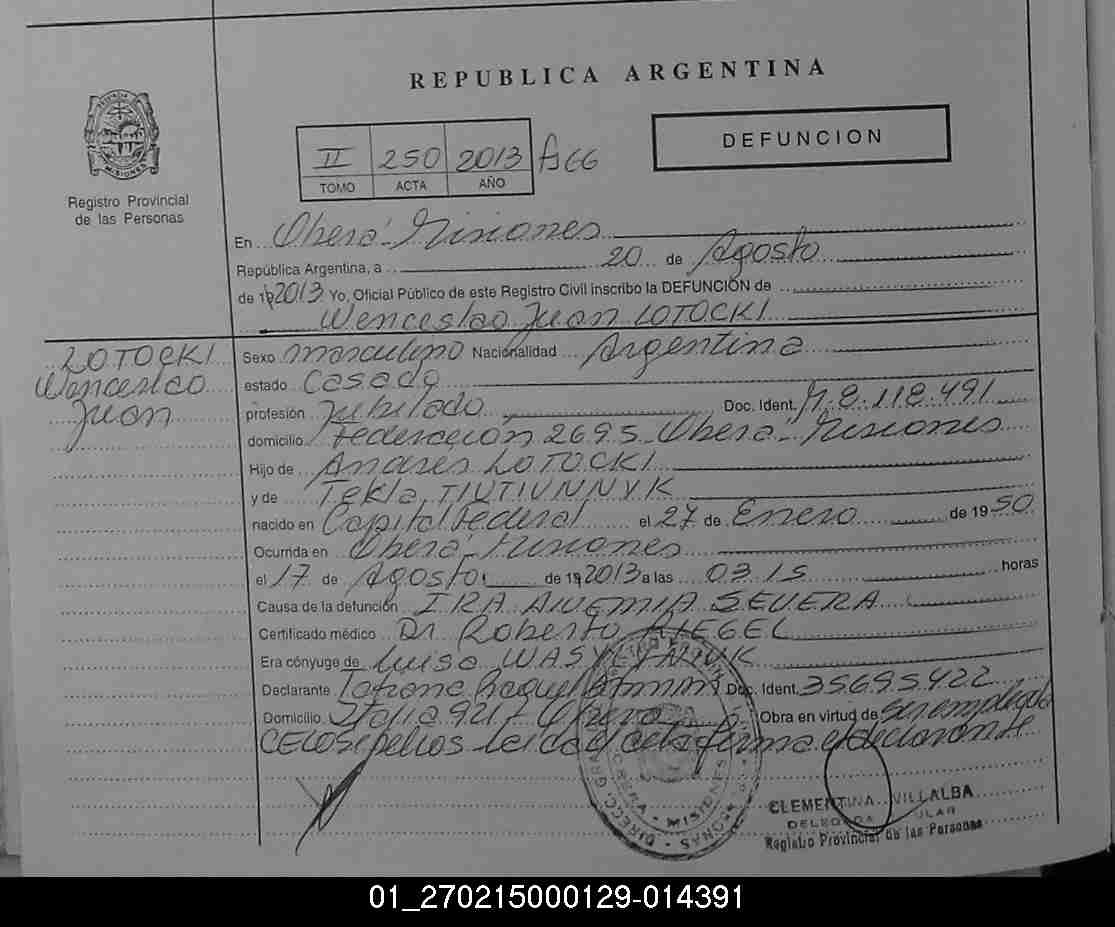 REPUBLICA ARGENTINA
DEFUNCION
II 250 2013 Fº 66
TOMO ACTA AÑO
Registro Provincial
de las Personas
En Oberá - Misiones
República Argentina, a 20 de Agosto
de 2013 Yo, Oficial Público de este Registro Civil inscribo la DEFUNCION de
Wenceslao Juan LOTOCKI
LOTOCKI
Wenceslao
Juan
Sexo masculino Nacionalidad Argentina
estado Casado
profesión Jubilado Doc. Ident. M 8.118.491
domicilio Federación 2695 - Oberá - Misiones
Hijo de Andrés LOTOCKI
y de Tekla TIUTIUNNYK
nacido en Capital Federal el 27 de Enero de 1950
Ocurrida en Oberá - Misiones
el 17 de Agosto de 2013 a las 03.15 horas
Causa de la defunción IRA ANEMIA SEVERA
Certificado médico Dr Roberto RIEGEL
Era cónyuge de Luisa WASYLYNIUK
Declarante Tatiana Raquel Doc. Ident. 35695422
Domicilio Oberá Obra en virtud de ser empleada
CELO sepelios leida el acta firma el declarante
DIRECC. GRAL.
OBERA - MISIONES
CLEMENTINA VILLALBA
DELEGADA TITULAR
Registro Provincial de las Personas
01_270215000129-014391